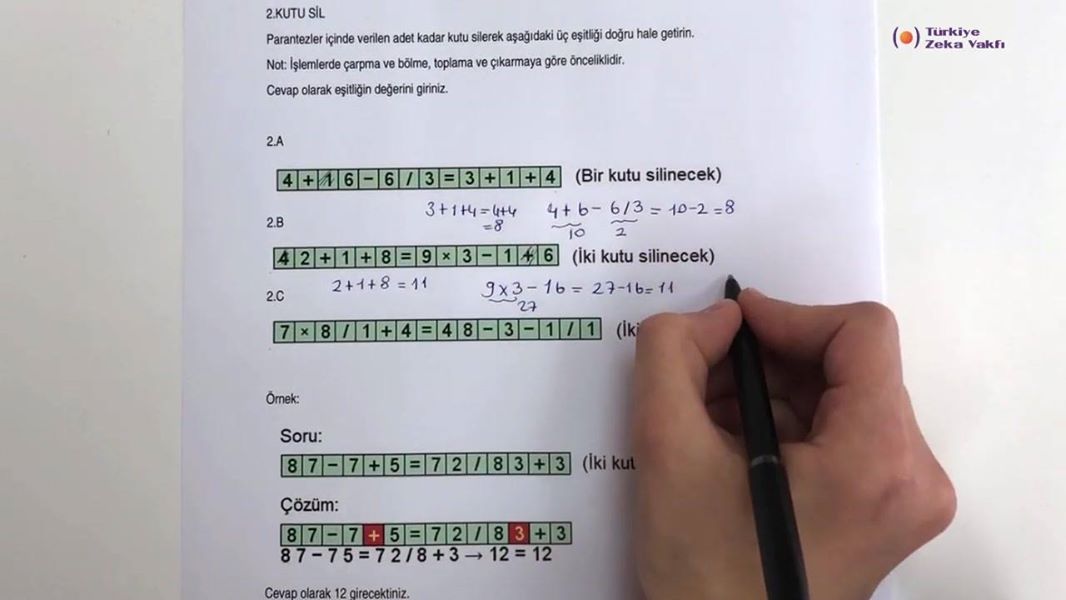 Türkiye
Zeka Vakfı
2.KUTU SİL
Parantezler içinde verilen adet kadar kutu silerek aşağıdaki üç eşitliği doğru hale getirin.
Not: İşlemlerde çarpma ve bölme, toplama ve çıkarmaya göre önceliklidir.
Cevap olarak eşitliğin değerini giriniz.
2.A
4+16-6/3=3+1+4 (Bir kutu silinecek)
3+1+4=4+4
=8
4+6-6/3=10-2=8
10 2
2.B
42+1+8=9×3-146 (İki kutu silinecek)
2+1+8=11
9×3-16=27-16=11
27
2.C
7×8/1+4=48-3-1/1 (İki
Örnek:
Soru:
87-7+5=72/83+3 (İki kut
Çözüm:
87-7+5=72/83+3
87-75=72/8+3→12=12
Cevap olarak 12 girecektiniz.